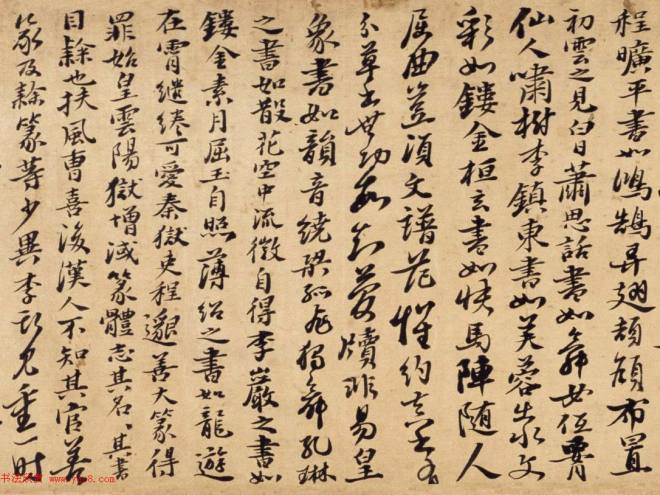 程曠平書如鴻鵠弄翅頡頏布置
初雲之見白日蕭思話書如舞女低
仙人嘯樹李鎮東書如芙蓉出水文
彩如鏤金桓玄書如快馬陣隨人
屈曲豈須文譜范懷約真書有
分草書無功故知簡牘非易皇
象書如韻音繞梁孤飛獨舞孔琳
之書如散花空中流徵自得李巖之書如
鏤金素月屈玉自照薄紹之書如龍遊
在霄繾綣可愛秦獄吏程邈善大篆得
罪始皇雲陽獄增減篆體志其名、其書
目隸也扶風曹喜後漢人不知其官善
篆及隸篆等少異李斯見重一時